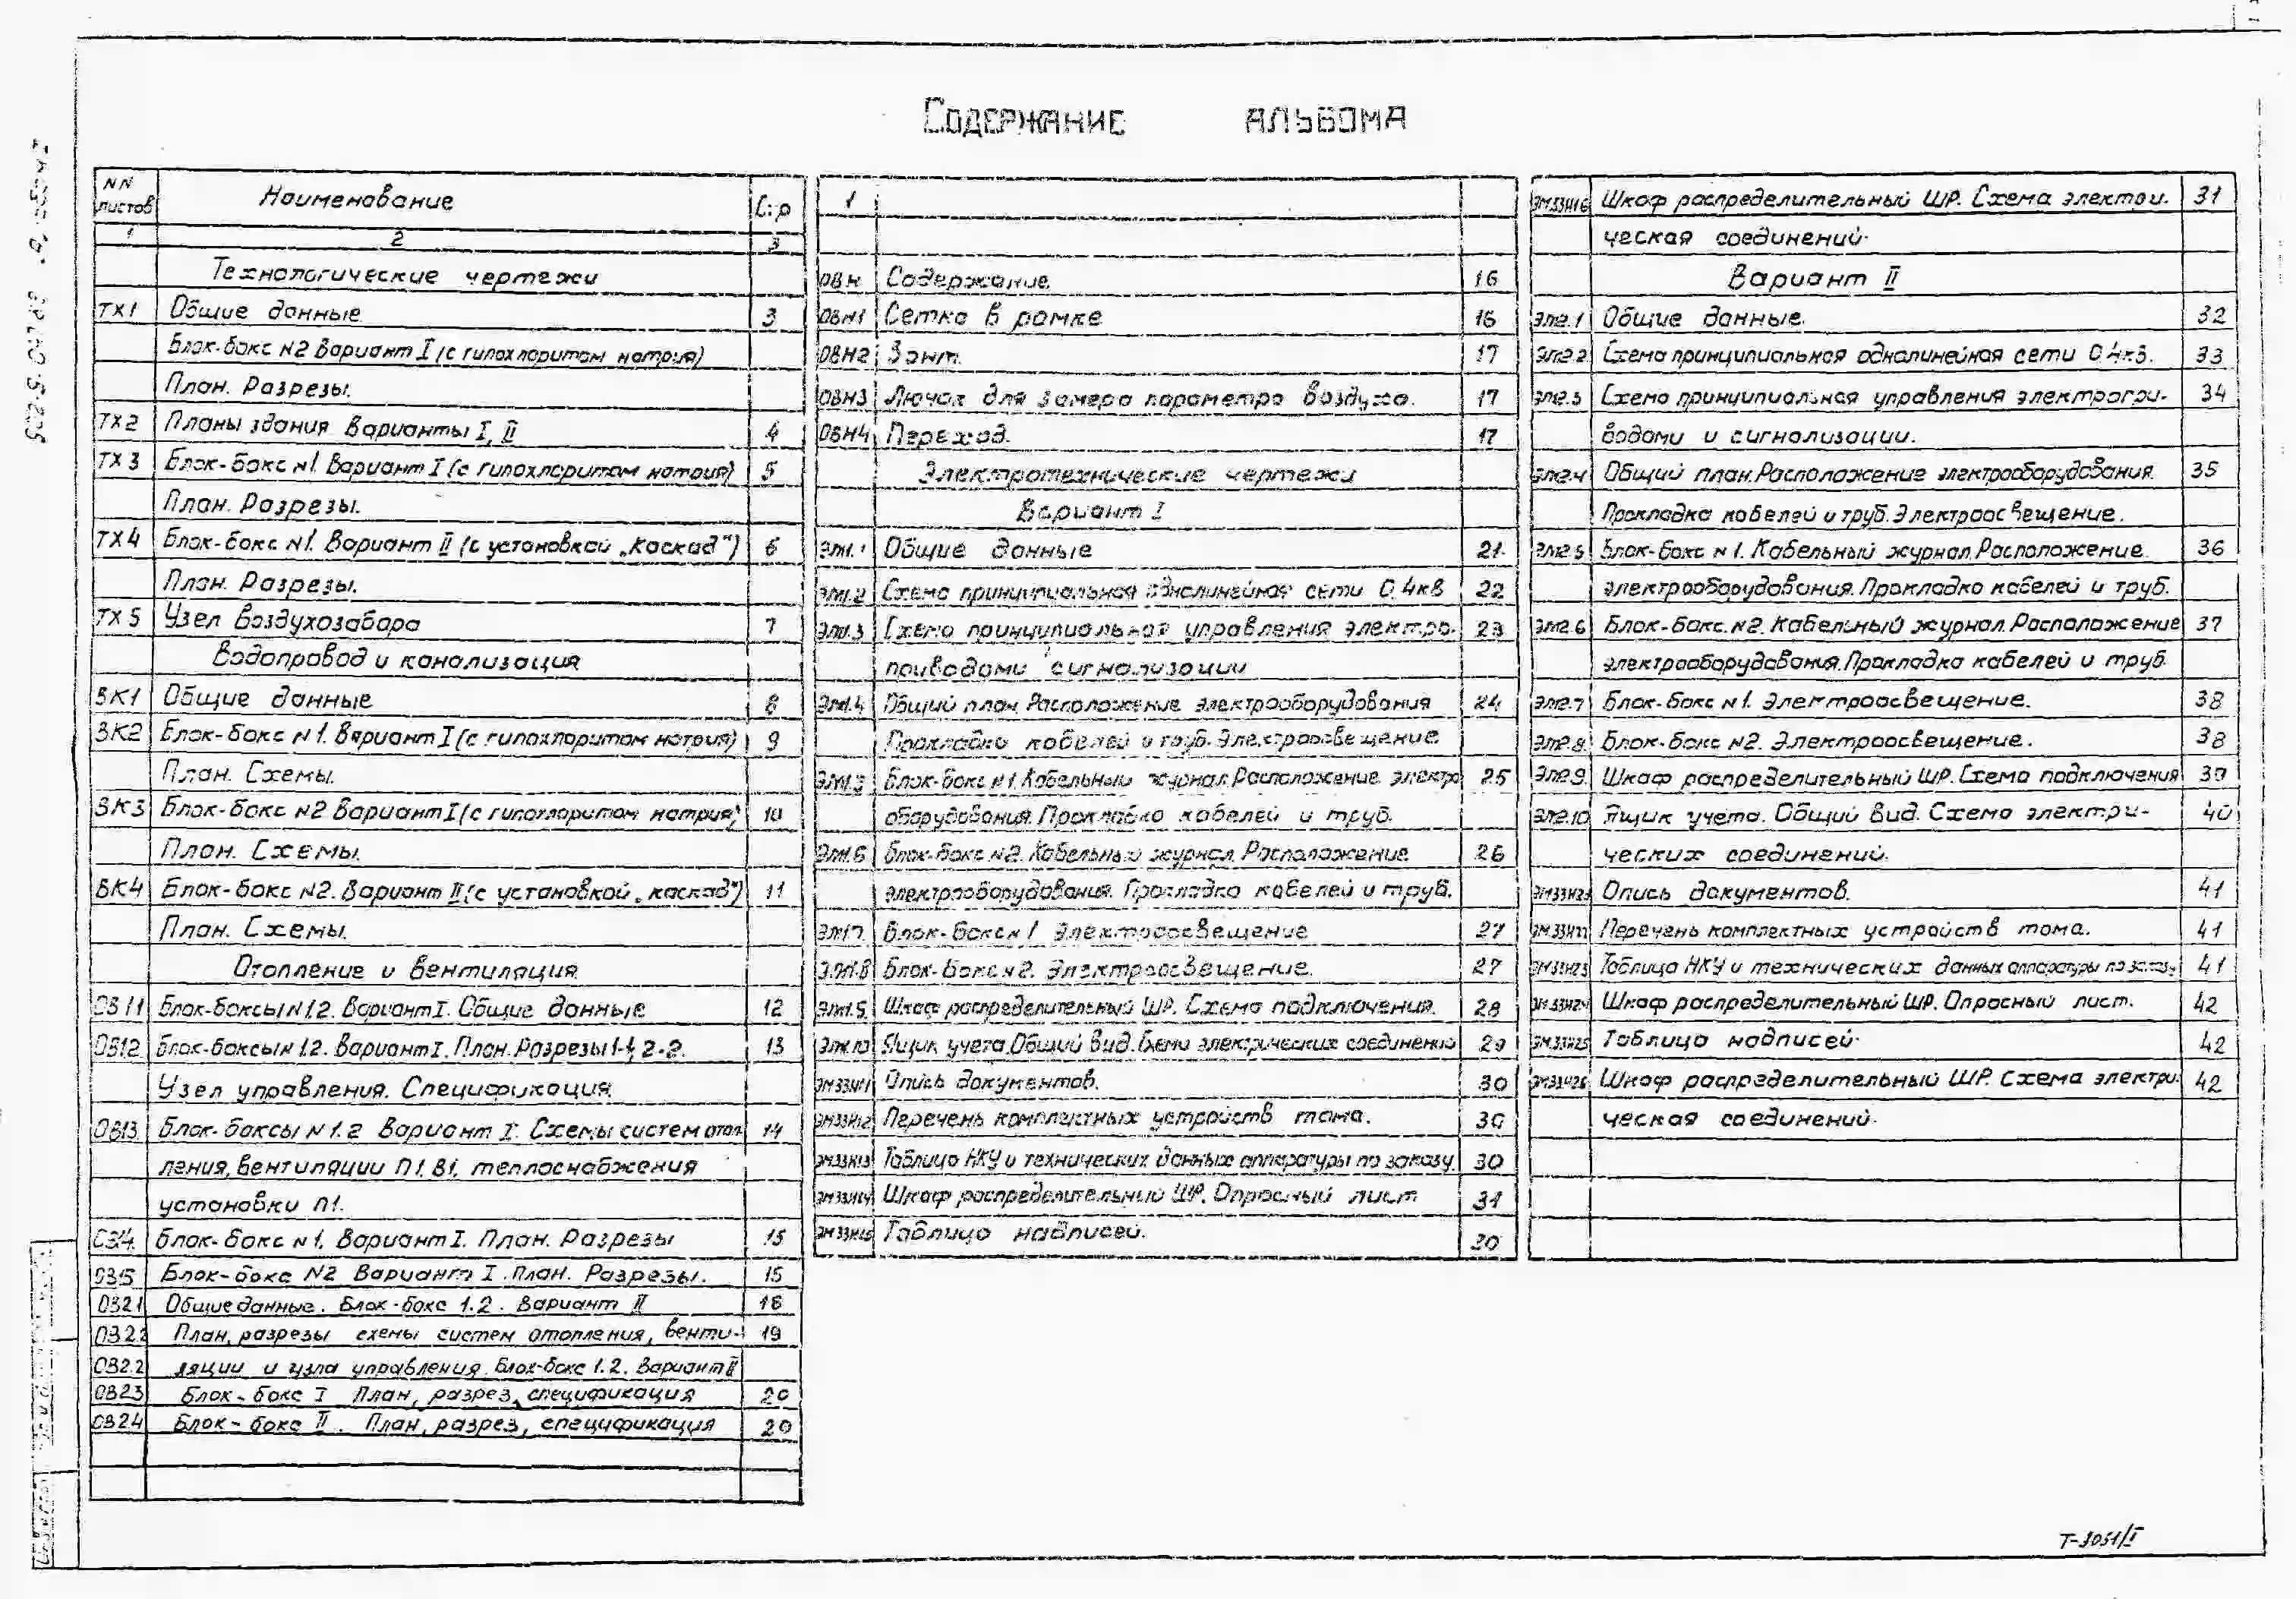 Содержание альбома
NN листов Наименование Стр
1 2 3
Технологические чертежи
ТХ1 Общие данные 3
Блок-бокс N2 Вариант I (с гипохлоритом натрия)
План. Разрезы.
ТХ2 Планы здания Варианты I, II 4
ТХ3 Блок-бокс N1. Вариант I (с гипохлоритом натрия) 5
План. Разрезы.
ТХ4 Блок-бокс N1. Вариант II (с установкой „Каскад") 6
План. Разрезы.
ТХ5 Узел воздухозабора 7
Водопровод и канализация
ВК1 Общие данные 8
ВК2 Блок-бокс N1. Вариант I (с гипохлоритом натрия) 9
План. Схемы.
ВК3 Блок-бокс N2 Вариант I (с гипохлоритом натрия) 10
План. Схемы.
ВК4 Блок-бокс N2. Вариант II (с установкой „каскад") 11
План. Схемы.
Отопление и вентиляция
ОВ1.1 Блок-боксы N1.2. Вариант I. Общие данные 12
ОВ1.2 Блок-боксы N1.2. Вариант I. План. Разрезы 1-1, 2-2. 13
Узел управления. Спецификация.
ОВ1.3 Блок-боксы N1.2 Вариант I. Схемы систем отоп- 14
ления, вентиляции П1. В1. теплоснабжения
установки П1.
ОВ1.4 Блок-бокс N1. Вариант I. План. Разрезы 15
ОВ1.5 Блок-бокс N2 Вариант I. План. Разрезы. 15
ОВ2.1 Общие данные. Блок-бокс 1.2. Вариант II 18
ОВ2.2 План, разрезы схемы систем отопления, венти- 19
ОВ2.2 ляции и узла управления. Блок-бокс 1.2. Вариант II
ОВ2.3 Блок-бокс I План, разрез, спецификация 20
ОВ2.4 Блок-бокс II. План, разрез, спецификация 20
1
ОВН Содержание. 16
ОВН1 Сетка в рамке 16
ОВН2 Зонт. 17
ОВН3 Лючок для замера параметра воздуха. 17
ОВН4 Переход. 17
Электротехнические чертежи
Вариант I
ЭМ1.1 Общие данные 21
ЭМ1.2 Схема принципиальная однолинейная сети 0,4кВ 22
ЭМ1.3 Схема принципиальная управления электро- 23
приводами сигнализации
ЭМ1.4 Общий план. Расположение электрооборудования 24
Прокладка кабелей и труб. Электроосвещение
ЭМ1.5 Блок-бокс N1. Кабельный журнал. Расположение электро 25
оборудования. Прокладка кабелей и труб.
ЭМ1.6 Блок-бокс N2. Кабельный журнал. Расположение 26
электрооборудования. Прокладка кабелей и труб.
ЭМ1.7 Блок-бокс N1 Электроосвещение 27
ЭМ1.8 Блок-бокс N2. Электроосвещение. 27
ЭМ1.9 Шкаф распределительный ШР. Схема подключения. 28
ЭМ1.10 Ящик учета. Общий вид. Схема электрических соединений 29
ЭМ33Н11 Опись документов. 30
ЭМ33Н12 Перечень комплектных устройств тома. 30
ЭМ33Н13 Таблица НКУ и технических данных аппаратуры по заказу. 30
ЭМ33Н14 Шкаф распределительный ШР. Опросный лист 31
ЭМ33Н15 Таблица надписей. 30
ЭМ33Н16 Шкаф распределительный ШР. Схема электри- 31
ческая соединений.
Вариант II
ЭМ2.1 Общие данные. 32
ЭМ2.2 Схема принципиальная однолинейная сети 0,4кВ. 33
ЭМ2.3 Схема принципиальная управления электропри- 34
водами и сигнализации.
ЭМ2.4 Общий план. Расположение электрооборудования. 35
Прокладка кабелей и труб. Электроосвещение.
ЭМ2.5 Блок-бокс N1. Кабельный журнал. Расположение 36
электрооборудования. Прокладка кабелей и труб.
ЭМ2.6 Блок-бокс. N2. Кабельный журнал. Расположение 37
электрооборудования. Прокладка кабелей и труб.
ЭМ2.7 Блок-бокс N1. Электроосвещение. 38
ЭМ2.8 Блок-бокс N2. Электроосвещение. 38
ЭМ2.9 Шкаф распределительный ШР. Схема подключения 39
ЭМ2.10 Ящик учета. Общий вид. Схема электри- 40
ческих соединений.
ЭМ33Н21 Опись документов. 41
Перечень комплектных устройств тома. 41
ЭМ33Н23 Таблица НКУ и технических данных аппаратуры по заказу 41
ЭМ33Н24 Шкаф распределительный ШР. Опросный лист. 42
ЭМ33Н25 Таблица надписей. 42
ЭМ33Н26 Шкаф распределительный ШР. Схема электри- 42
ческая соединений.
Т-3051/I